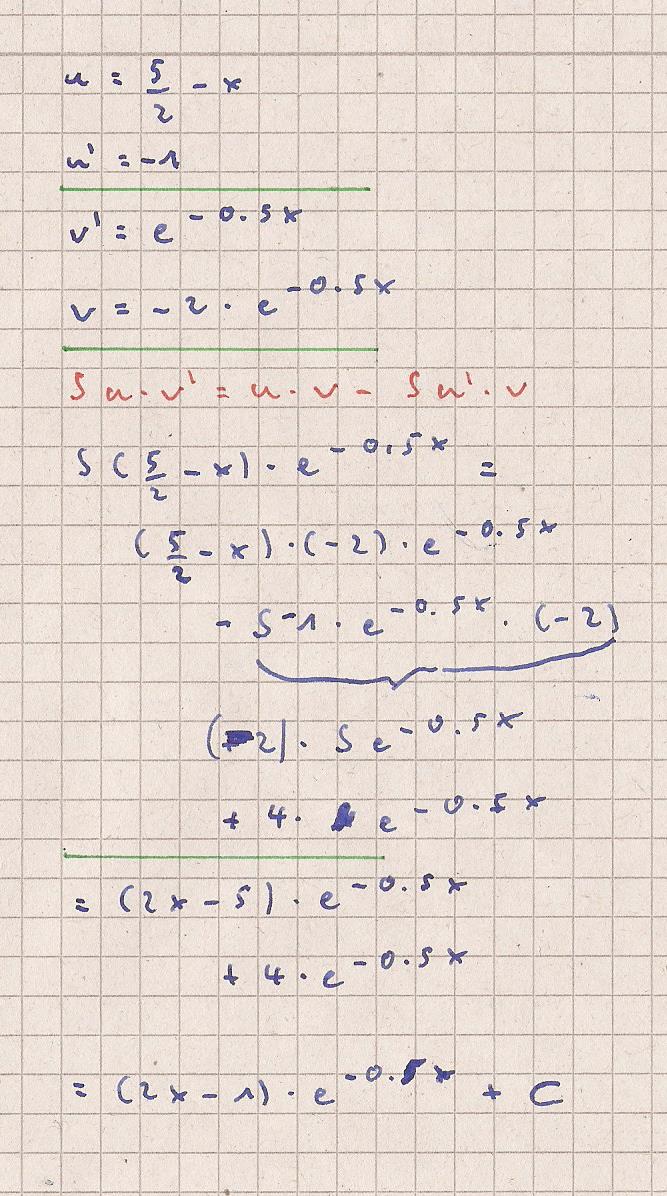 u = 5/2 - x
u' = -1
v' = e^-0.5x
v = -2 · e^-0.5x
∫ u · v' = u · v - ∫ u' · v
∫ (5/2 - x) · e^-0.5x =
(5/2 - x) · (-2) · e^-0.5x
- ∫ -1 · e^-0.5x · (-2)
(-2) · ∫ e^-0.5x
+ 4 · e^-0.5x
= (2x - 5) · e^-0.5x
+ 4 · e^-0.5x
= (2x - 1) · e^-0.5x + C